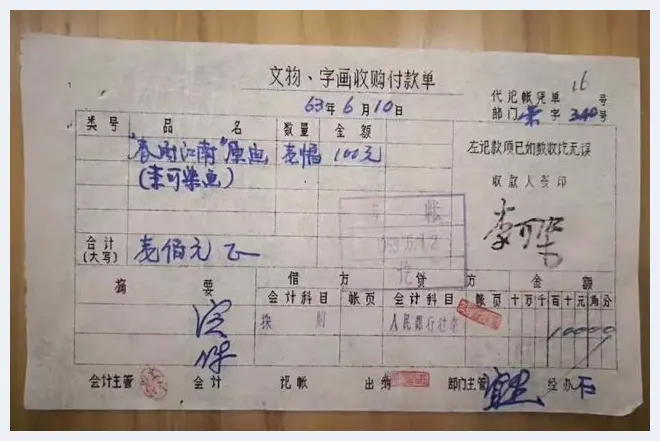 文物、字画收购付款单
代记帐凭单 16 号
63年6月10日
部门 荣 字 340 号
类号 品名 数量 金额
左记款项已如数收讫无误
"春雨江南"原画 壹幅 100元
(李可染画)
收款人签印
李可染
合计(大写) 壹佰元正
摘要 借方 贷方 金额
会计科目 帐页 会计科目 帐页 十万千百十元角分
人民银行往来 10000
会计主管 会计 记帐 出纳 部门主管 经办 石